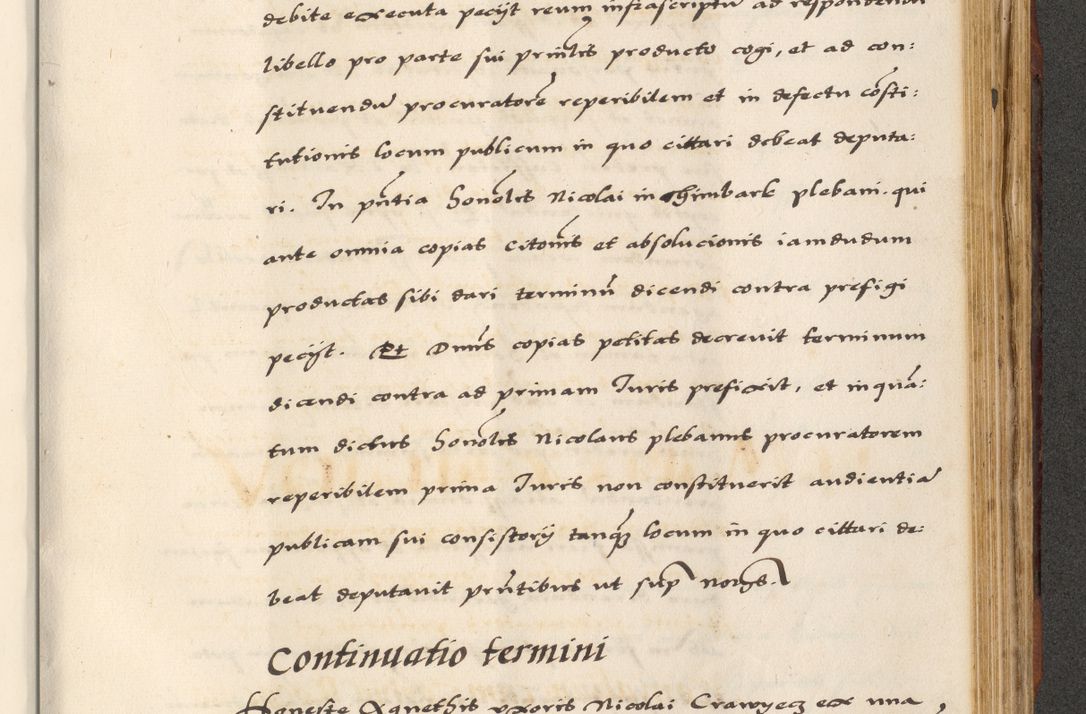 debite executa pecijt reum infrascriptũ ad respondendũ
libello pro parte sui prinĩlis producto cogi, et ad con:
stituendũ procuratorẽ reperibilem et in defectu cõsti:
tutionis locum publicum in quo cittari debeat deputa:
ri. In pñtia honõlis Nicolai in Shimbark plebani. qui
ante omnia copias citonĩs et absolucionis iamdudum
productas sibi dari terminũ dicendi contra prefigi
pecijt. Et Dnũs copias petitas decrevit terminum
dicendi contra ad primam Iuris prefixit, et in quã:
tum dictus honõlis Nicolaus plebanus procuratorem
reperibilem prima Iuris non constituerit audientiã
publicam sui consistorij tanq̃ locum in quo cittari de:
beat deputavit prñtibus ut sup̃ nor̃gs.
Continuatio termini
Honeste Agnethis uxoris Nicolai Crawyecz ex una